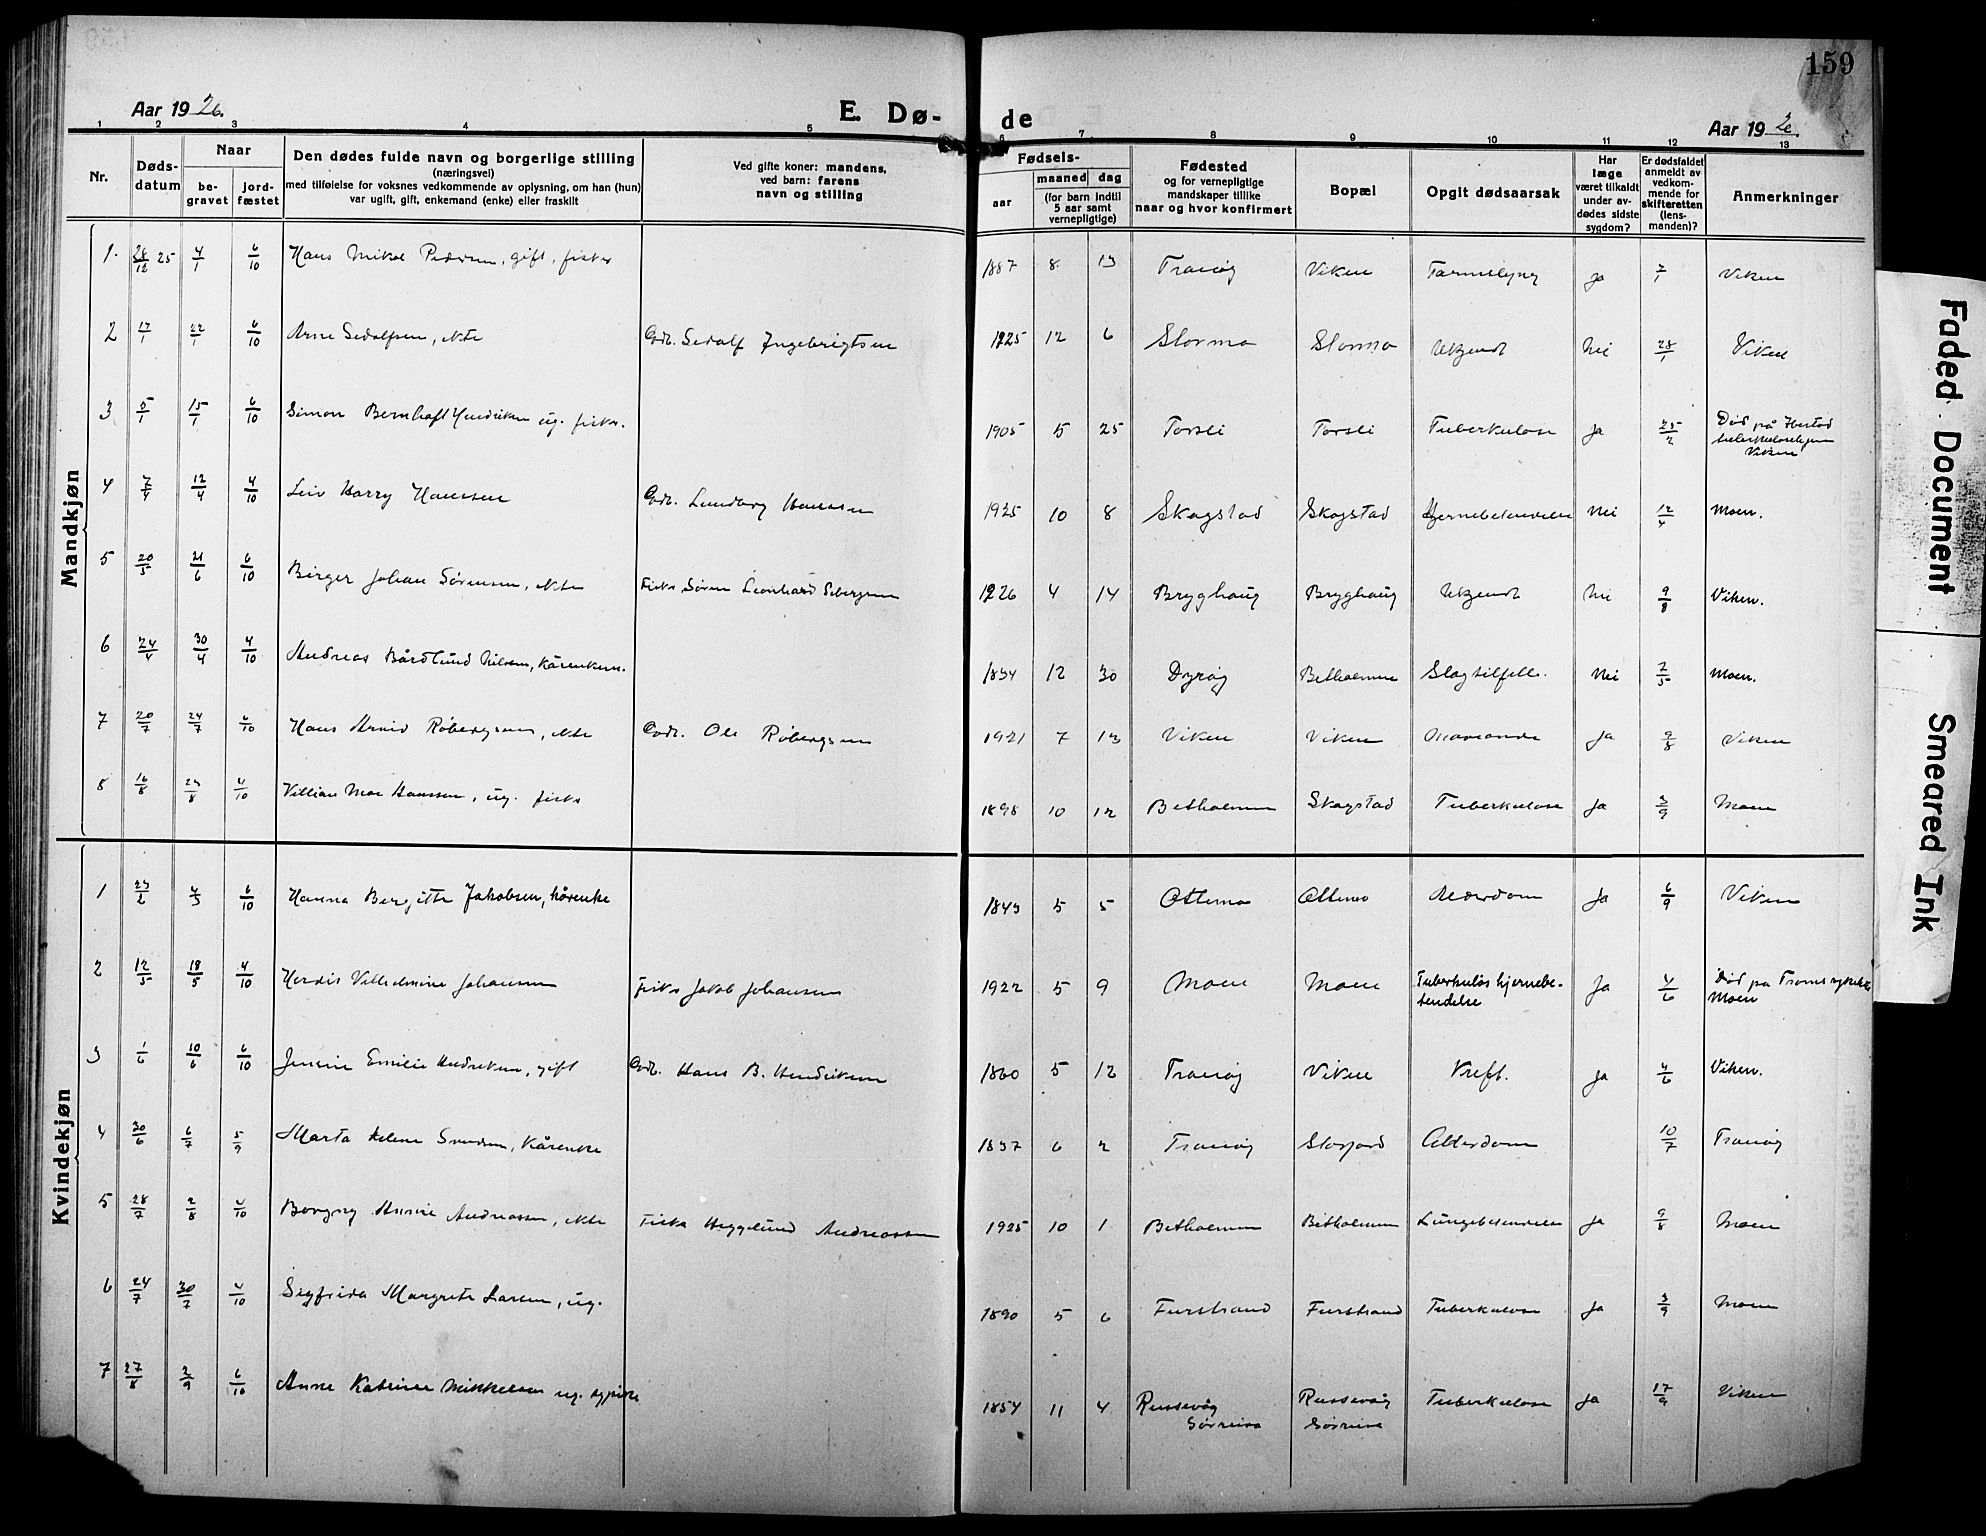 159
Aar 1926.
E. Dø-
de
Aar 192
1 2 3 4 5 6 7 8 9 10 11 12 13
Nr.
Døds-
datum
Naar
be-
gravet
jord-
fæstet
Den dødes fulde navn og borgerlige stilling
(næringsvei)
med tilføielse for voksnes vedkommende av oplysning, om han (hun)
var ugift, gift, enkemand (enke) eller fraskilt
Ved gifte koner: mandens,
ved barn: farens
navn og stilling
Fødsels-
aar
maaned dag
(for barn indtil
5 aar samt
vernepligtige)
Fødested
og for vernepligtige
mandskaper tillike
naar og hvor konfirmert
Bopæl
Opgit dødsaarsak
Har
læge
været tilkaldt
under av-
dødes sidste
sygdom?
Er dødsfaldet
anmeldt av
vedkom-
mende for
skifteretten
(lens-
manden)?
Anmerkninger
Mandkjøn
1. 28/12 25 4/1 6/10 Hans Mikal Pedersen, gift, fisker 1887 8 13 Tranøy Viken Tarmslyng Ja 7/1 Viken
2 17/1 22/1 6/10 Arne Sedolfsen, ekte Gdb. Sedolf Ingebrigtsen 1925 12 6 Slormo Slormo Ukjendt Nei 28/1 Viken
3 5/1 15/1 6/10 Simon Bernhoft Hendriksen ug. fisker. 1905 5 25 Torsli Torsli Tuberkulose Ja 25/2 Død på Ibestad
tuberkulosehjem
Viken
4 7/4 12/4 4/10 Leiv Harry Hanssen Gdb. Lundberg Hanssen 1925 10 8 Skogstad Skogstad Hjernebetendelse Nei 12/4 Moen.
5 20/5 21/6 6/10 Birger Johan Sørensen, ekte Fisker Søren Leonhard Sebergsen 1926 4 14 Bryghaug Bryghaug Ukjendt Nei 9/8 Viken.
6 24/4 30/4 4/10 Andreas Bårdlund Nilsen, kårenkem. 1834 12 30 Dyrøy Betholmen Slagtilfelle. Nei 7/5 Moen.
7 20/7 24/7 6/10 Hans Arvid Robergsen, ekte Gdb. Ole Robergsen 1921 7 13 Viken Viken Ja 9/8 Viken
8 16/8 23/8 4/10 Villian Moe Hanssen, ug. fisker 1898 10 12 Betholmen Skogstad Tuberkulose Ja 3/9 Moen
Kvindekjøn
1 23/2 4/3 6/10 Hanna Bergitte Jakobsen, kårenke 1843 5 5 Ottemo Ottemo Alderdom Ja 6/9 Viken
2 12/5 18/5 4/10 Herdis Vilhelmine Johansen Fisker Jakob Johansen 1922 5 9 Moen Moen Tuberkuløs hjernebe-
tendelse Ja 4/6 Død på Troms sykehus
Moen
3 1/6 10/6 6/10 Jensine Emilie Hendriksen, gift Gdb. Hans B. Hendriksen 1860 5 12 Tranøy Viken Kreft. Ja 4/6 Viken.
4 30/6 6/7 5/9 Marta Helene Svendsen, Kårenke 1837 6 2 Tranøy Storjord Alderdom 10/7 Tranøy
5 28/7 2/8 4/10 Borgny Annie Andreassen, ekte Fisker Hegglund Andreassen 1925 10 1 Betholmen Betholmen Lungebetendelse Ja 9/8 Moen
6 24/7 30/7 4/10 Sigfrida Margrete Larsen, ug. 1890 5 6 Furstrand Furstrand Tuberkulose Ja 3/9 Moen
7 27/8 2/9 6/10 Anne Katrine Mikkelsen ug. sypike 1854 11 4 Russevåg
Sørreisa Russevåg
Sørreisa Tuberkulose Ja 17/9 Viken
Faded Document
Smeared Ink